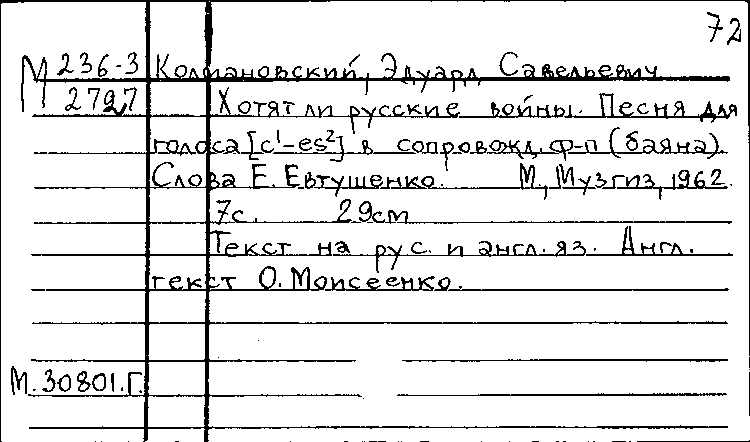 72
М 236-3 Колмановский, Эдуард Савельевич
2727 Хотят ли русские войны. Песня для
голоса [c¹-es²] в сопровожд. ф-п (баяна).
Слова Е. Евтушенко. М., Музгиз, 1962.
7с. 29см
Текст на рус. и англ. яз. Англ.
текст О. Моисеенко.
М.30801.Г.